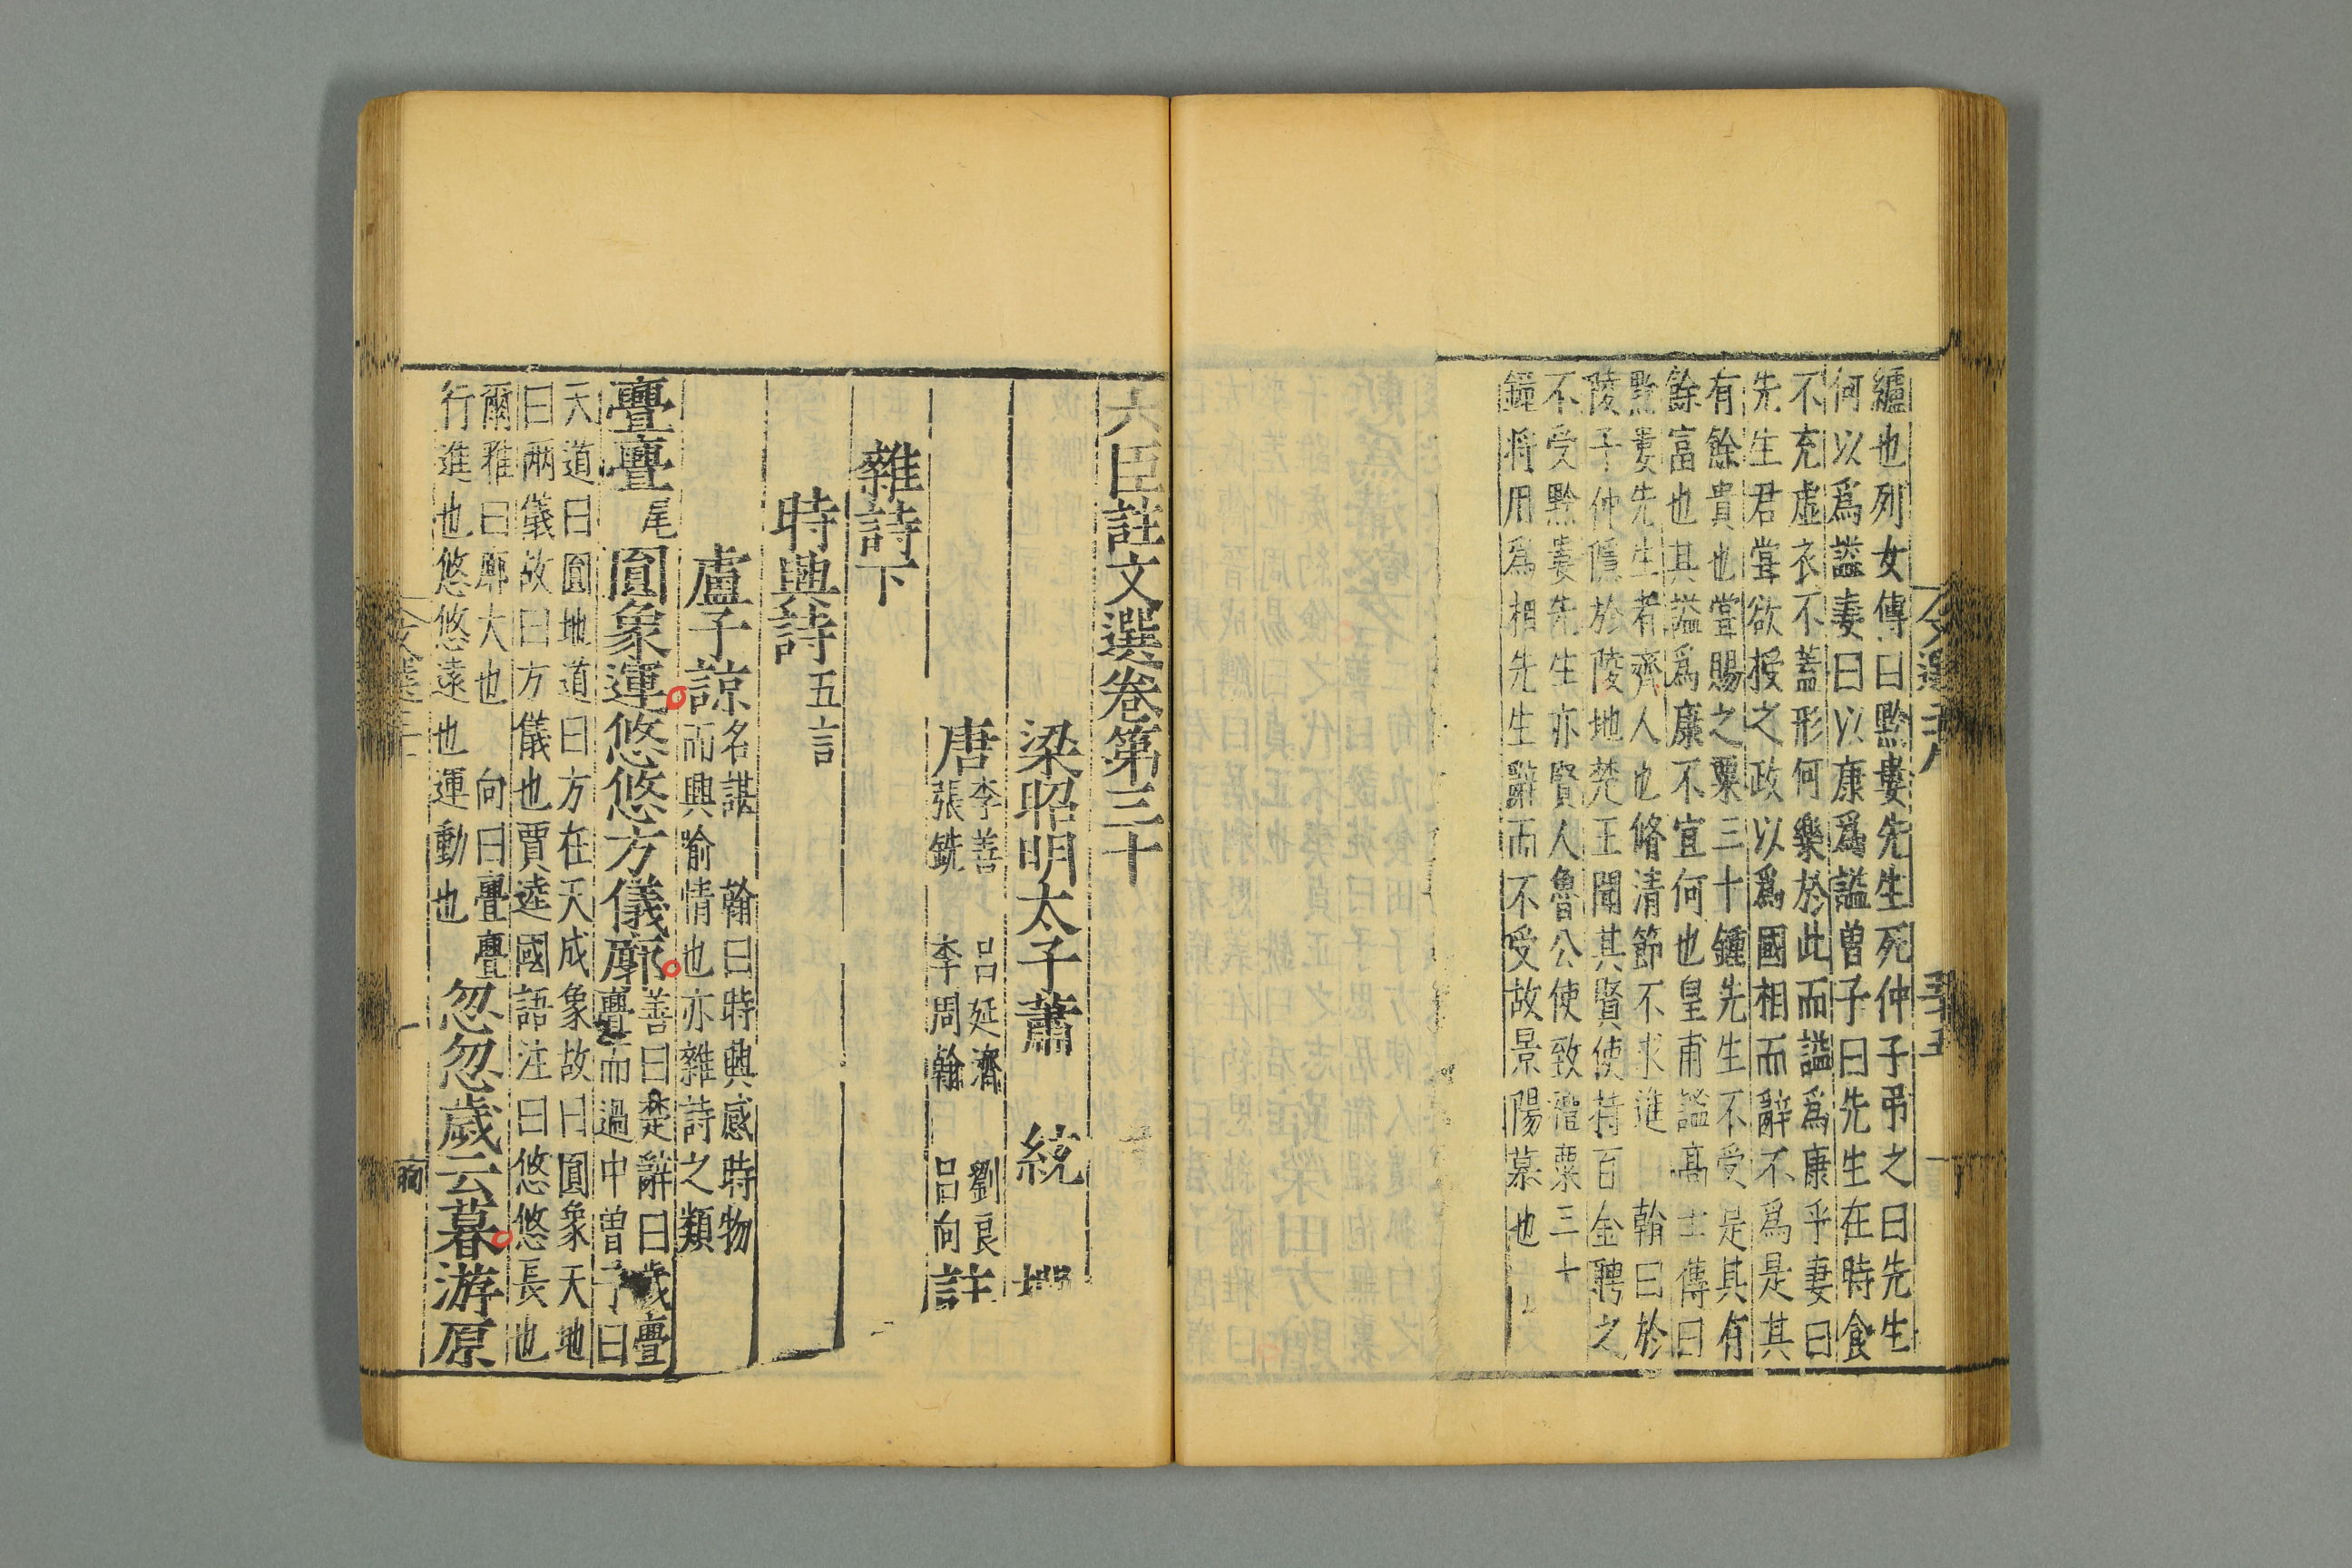 纑也列女傳曰黔婁先生死仲子弔之曰先生
何以爲謚妻曰以康爲謚曽子曰先生在時食
不充虛衣不蓋形何樂於此而謚爲康乎妻曰
先生君甞欲授之政以爲國相而辭不爲是其
有餘貴也甞賜之粟三十鍾先生不受是其有
餘富也其謚爲康不宜何也皇甫謐髙士傳曰
黔婁先生者齊人也脩清節不求進 翰曰於
陵子仲隱於陵地楚王聞其賢使持百金聘之
不受黔婁先生亦賢人魯公使致禮粟三十
鐘將用爲相先生辭而不受故景陽慕也
六臣註文選卷第三十
梁昭明太子蕭 統 撰
唐 李善 呂延濟 劉良
張銑 李周翰 呂向 註
雜詩下
時興詩五言
盧子諒 名諶 翰曰時興感時物
而興喻情也亦雜詩之類
亹亹尾圓象運悠悠方儀廓 善曰楚辭曰歲亹
亹而過中曽子曰
天道曰圓地道曰方在天成象故曰圓象天地
曰兩儀故曰方儀也賈逵國語注曰悠悠長也
爾雅曰廓大也 向曰亹亹
行進也悠悠遠也運動也 忽忽歲云暮游原